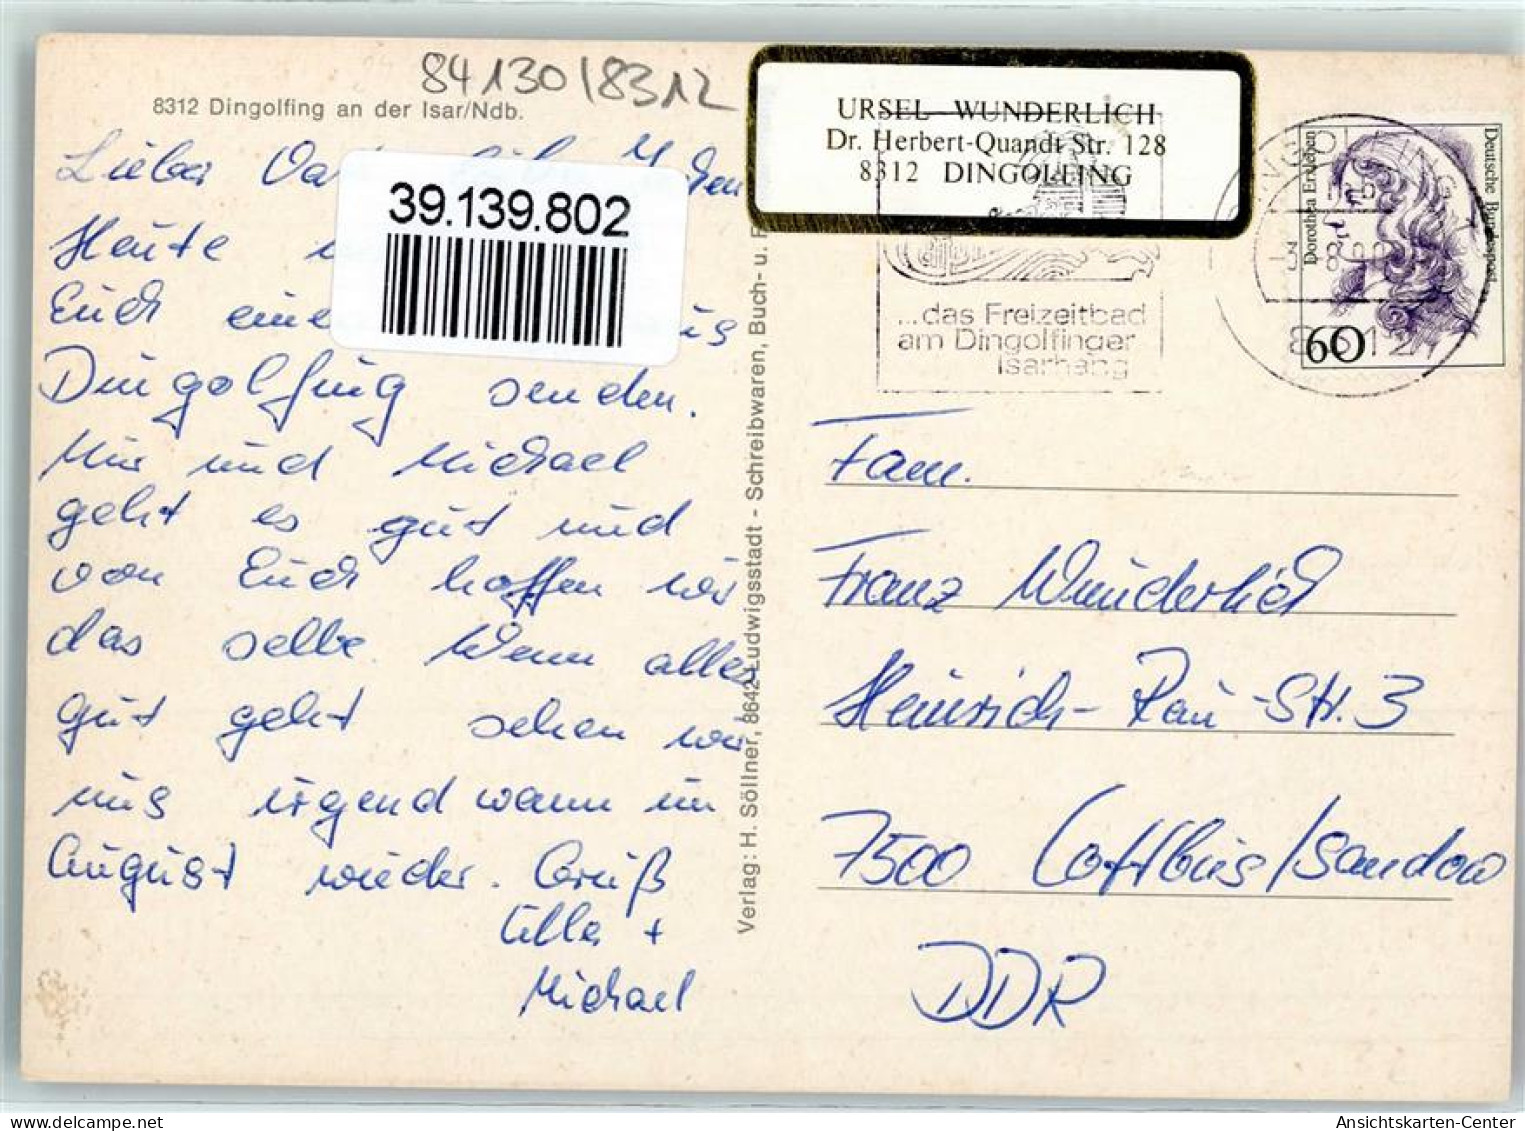 84130/8312
8312 Dingolfing an der Isar/Ndb.
Lieber
Heute
Euch eine
Dingolfing senden.
Mir und Michael
geht es gut und
von Euch hoffen wir
das selbe. Wenn alles
gut geht sehen wir
uns irgendwann im
August wieder. Gruß
Ulla +
Michael
39.139.802
Verlag: H. Söllner, 8642 Ludwigsstadt - Schreibwaren, Buch- u.
URSEL WUNDERLICH
Dr. Herbert-Quandt Str. 128
8312 DINGOLFING
...das Freizeitbad
am Dingolfinger
Isarhang
DINGOLFING
8312
Dorothea Erxleben
Deutsche Bundespost
60
Fam.
Franz Wunderlich
Heinrich-Rau-Str. 3
7500 Cottbus/Sandow
DDR
Ansichtskarten-Center